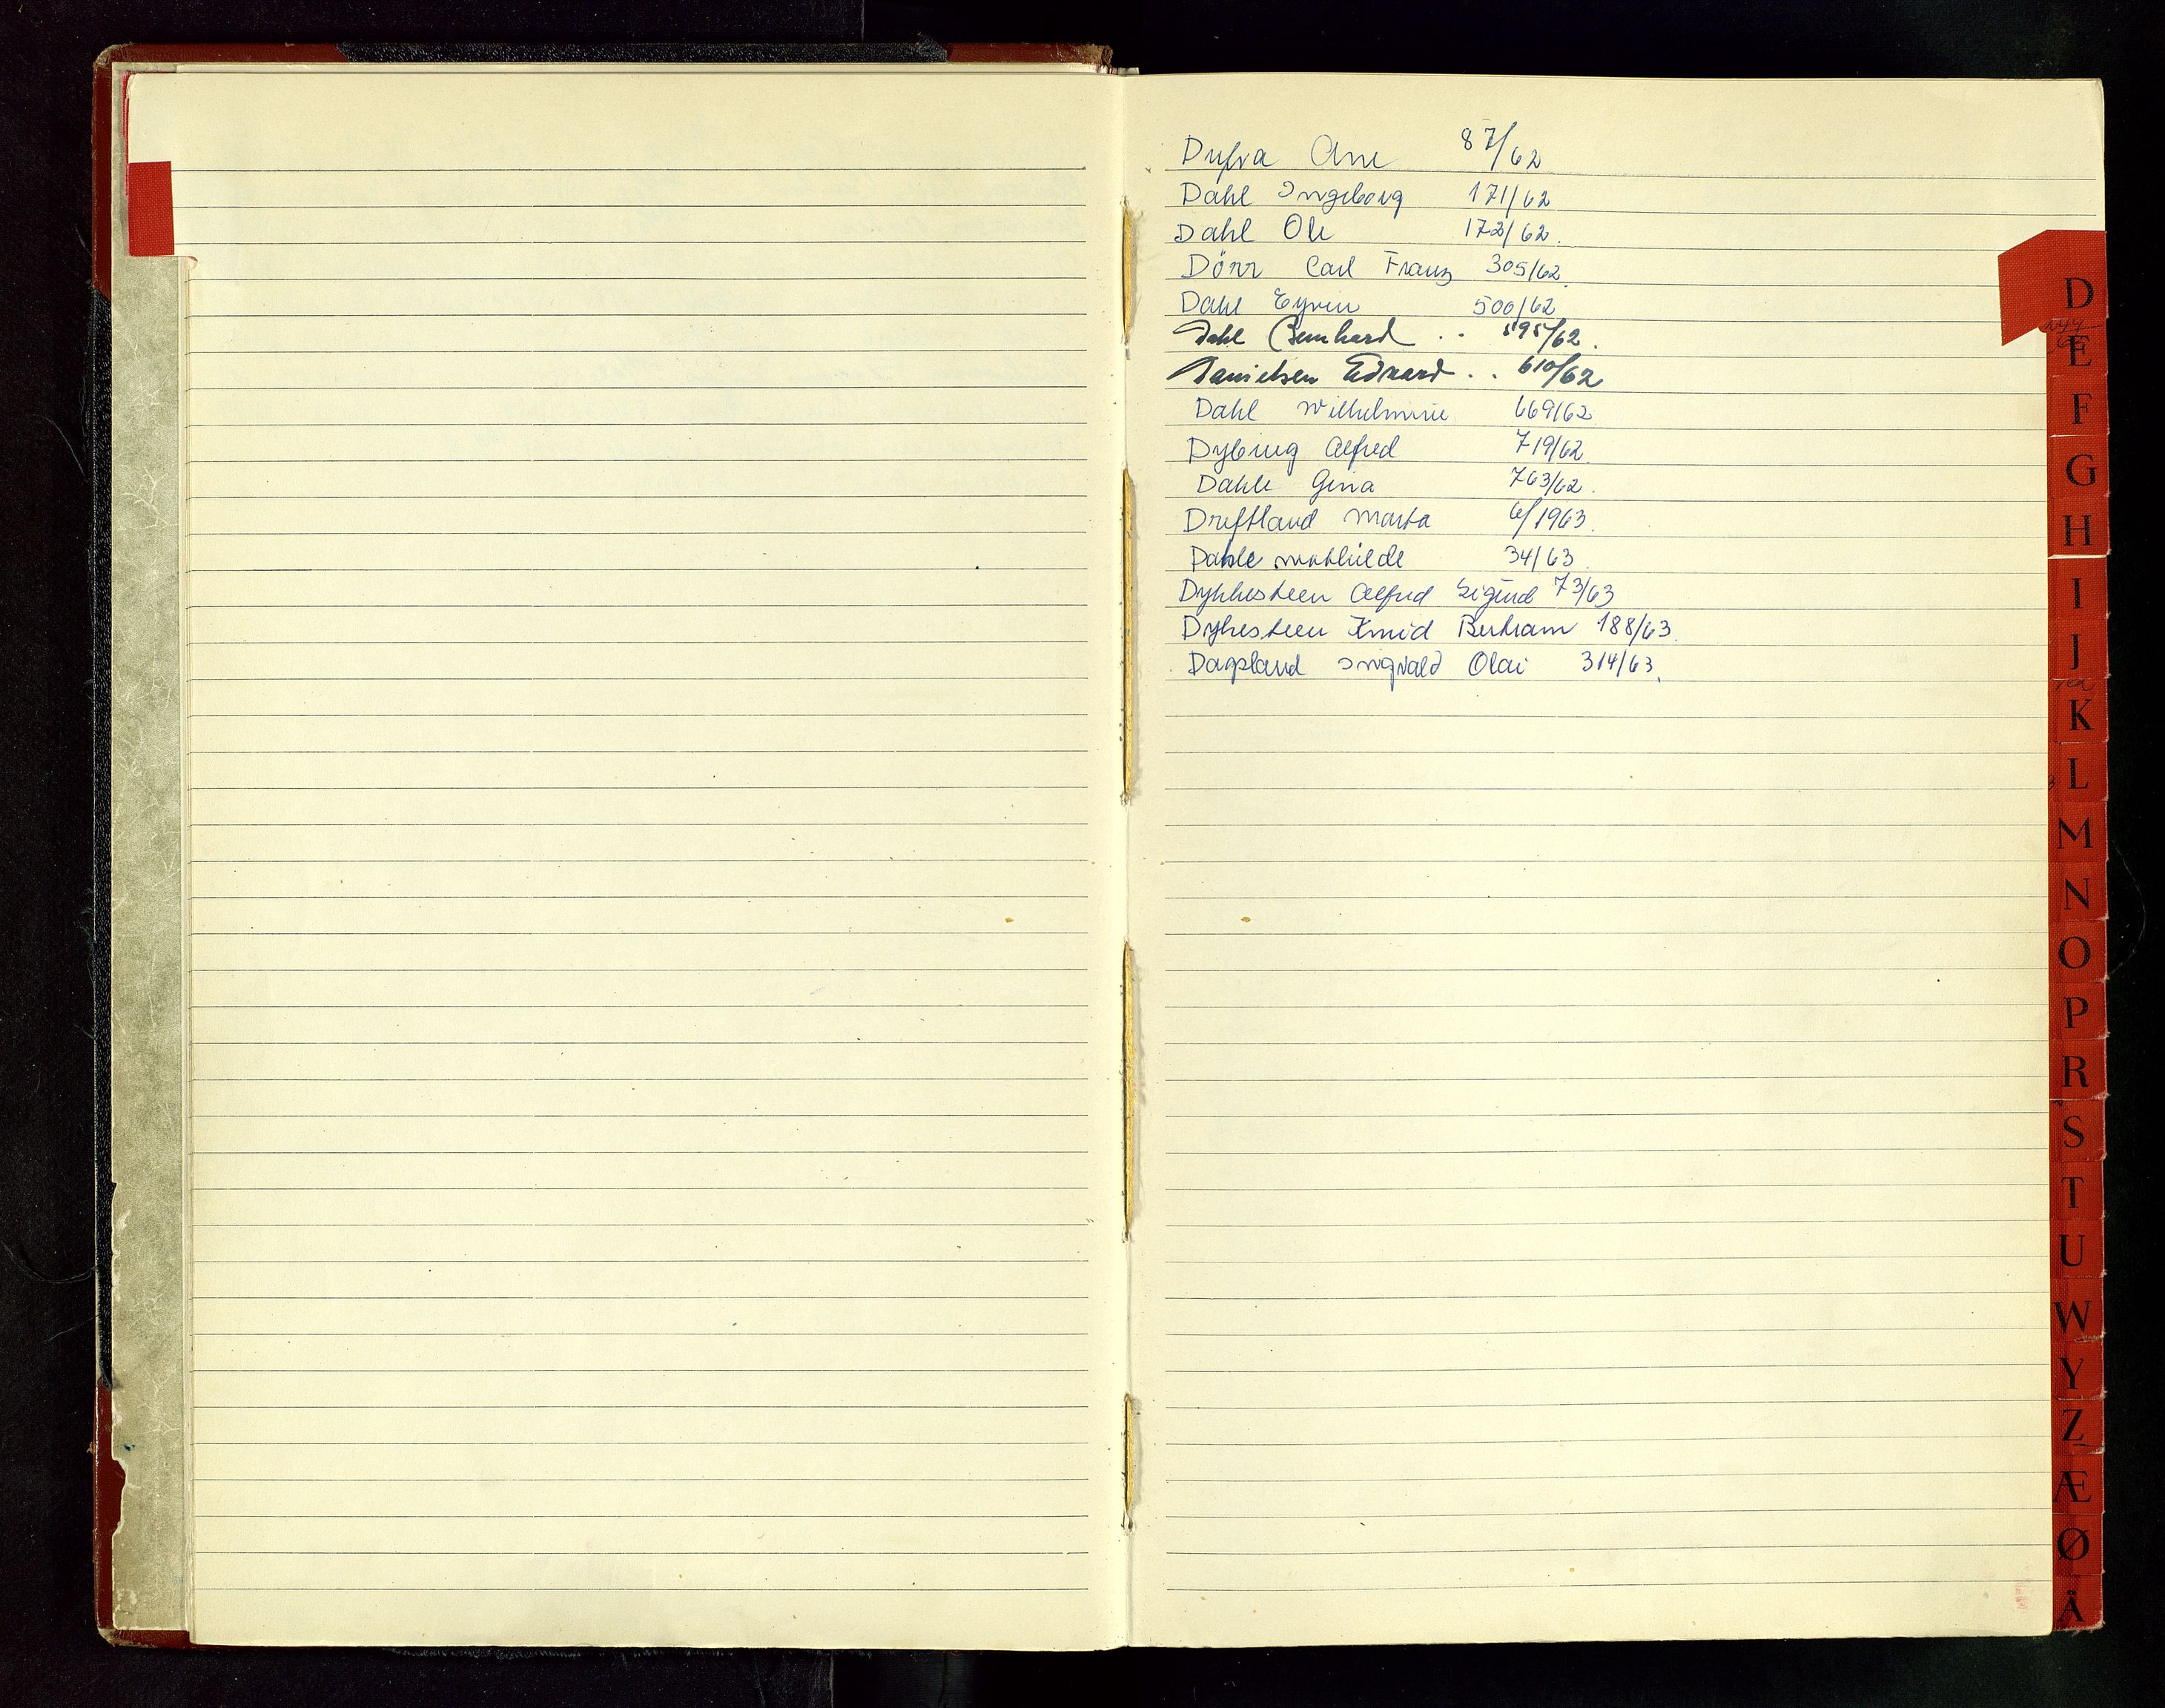 Dysva Ane 87/62
Dahl Ingeborg 171/62
Dahl Ole 172/62.
Dörr Carl Franz 305/62.
Dahl Eyvin 500/62
Dahl Bernhard . . 595/62.
Danielsen Edvard . . 610/62
Dahl Wilhelmine 669/62
Dybing Alfred 719/62.
Dahle Gina 763/62.
Dreftland Marta 6/1963.
Dahle Mathilde 34/63.
Dykkesteen Alfred Sigurd 73/63
Dykesteen Knud Bertram 188/63.
Dagsland Ingvald Olai 314/63.
D
E
F
G
H
I
J
K
L
M
N
O
P
R
S
T
U
W
Y
Z
Æ
Ø
Å